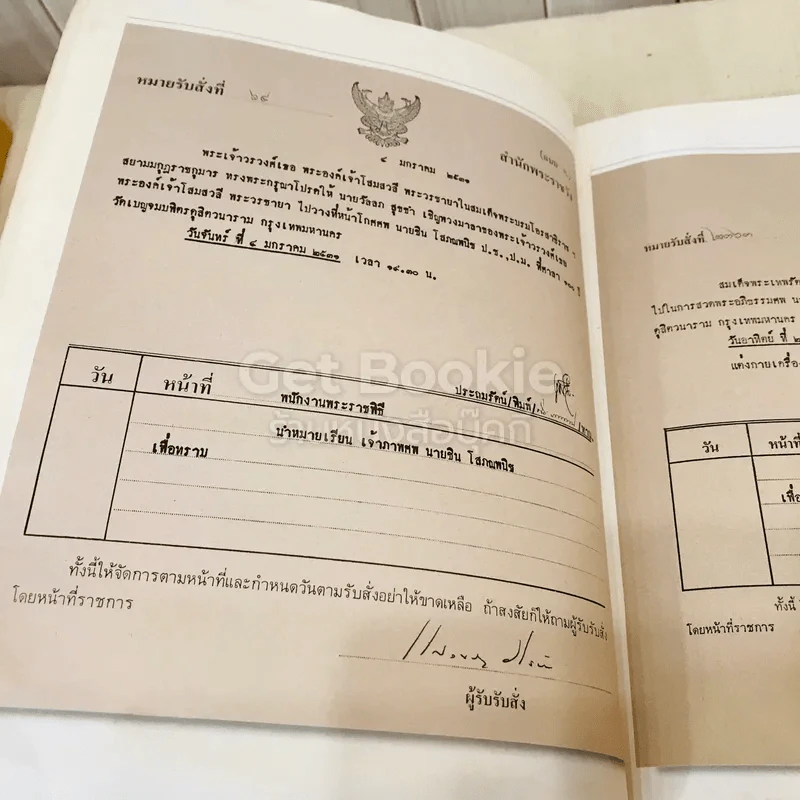 หมายรับสั่งที่ ๖๔
สำนักพระราชวัง
๔ มกราคม ๒๕๓๑
พระเจ้าวรวงศ์เธอ พระองค์เจ้าโสมสวลี พระวรชายาในสมเด็จพระบรมโอรสาธิราช ฯ
สยามมกุฎราชกุมาร ทรงพระกรุณาโปรดให้ นายวัลลภ สุขขำ เชิญพวงมาลาของพระเจ้าวรวงศ์เธอ
พระองค์เจ้าโสมสวลี พระวรชายา ไปวางที่หน้าโกศศพ นายชิน โสภณพนิช ป.ช.,ป.ม. ที่ศาลา ๑๐๐ ปี
วัดเบญจมบพิตรดุสิตวนาราม กรุงเทพมหานคร
วันจันทร์ ที่ ๔ มกราคม ๒๕๓๑ เวลา ๑๙.๓๐ น.
ประถมรัตน์/พิมพ์/
วัน หน้าที่ พนักงานพระราชพิธี
นำหมายเรียน เจ้าภาพศพ นายชิน โสภณพนิช
เพื่อทราบ
ทั้งนี้ให้จัดการตามหน้าที่และกำหนดวันตามรับสั่งอย่าให้ขาดเหลือ ถ้าสงสัยก็ให้ถามผู้รับรับสั่ง
โดยหน้าที่ราชการ
ผู้รับรับสั่ง
Get Bookie
ร้านหนังสือบุ๊คกี้
หมายรับสั่งที่
สมเด็จพระเทพรัต
ไปในการสวดพระอภิธรรมศพ
ดุสิตวนาราม กรุงเทพมหานคร
วันอาทิตย์ ที่ ๒
แต่งกายเครื่อง
วัน หน้าที่
เพื่อ
ทั้งนี้
โดยหน้าที่ราชการ